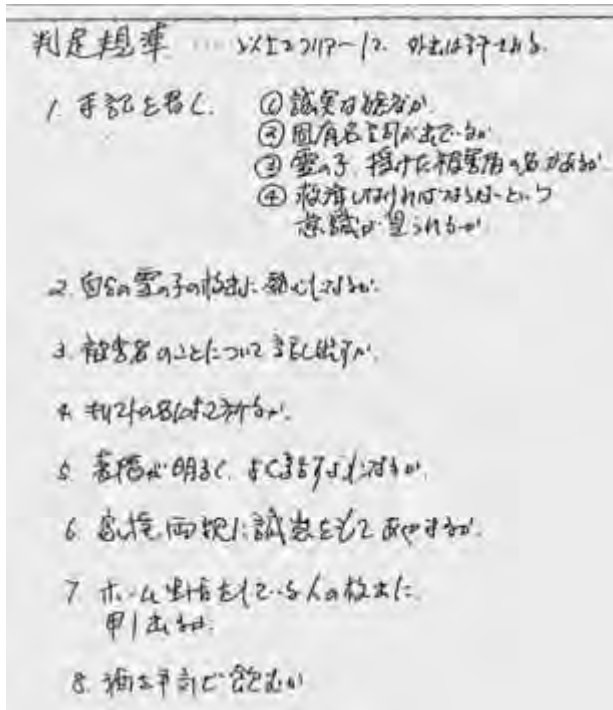 判定規準 … 以上 外出は許される.
1. 手記を書く. ① 誠実な姿か.
② 固有名詞が出ているか
③ 霊の子, 授けた被害者の名があるか.
④ 救済しなければならないという
意識が見られるか
2. 自分の霊の子の救出に熱心になるか.
3. 被害者のことについて話し出すか.
4. キリストの名によって祈るか.
5. 表情が明るく, よくなるか.
6. 家族, 両親に誠意をもって あやまるか.
7. ホーム生活をしている人の救出に
申し出るか.
8. 酒を平気で飲むか